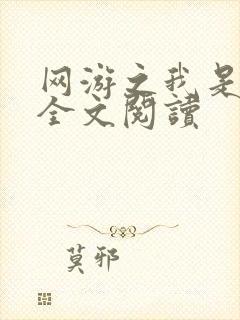 网游之我是
全文閱讀
莫邪